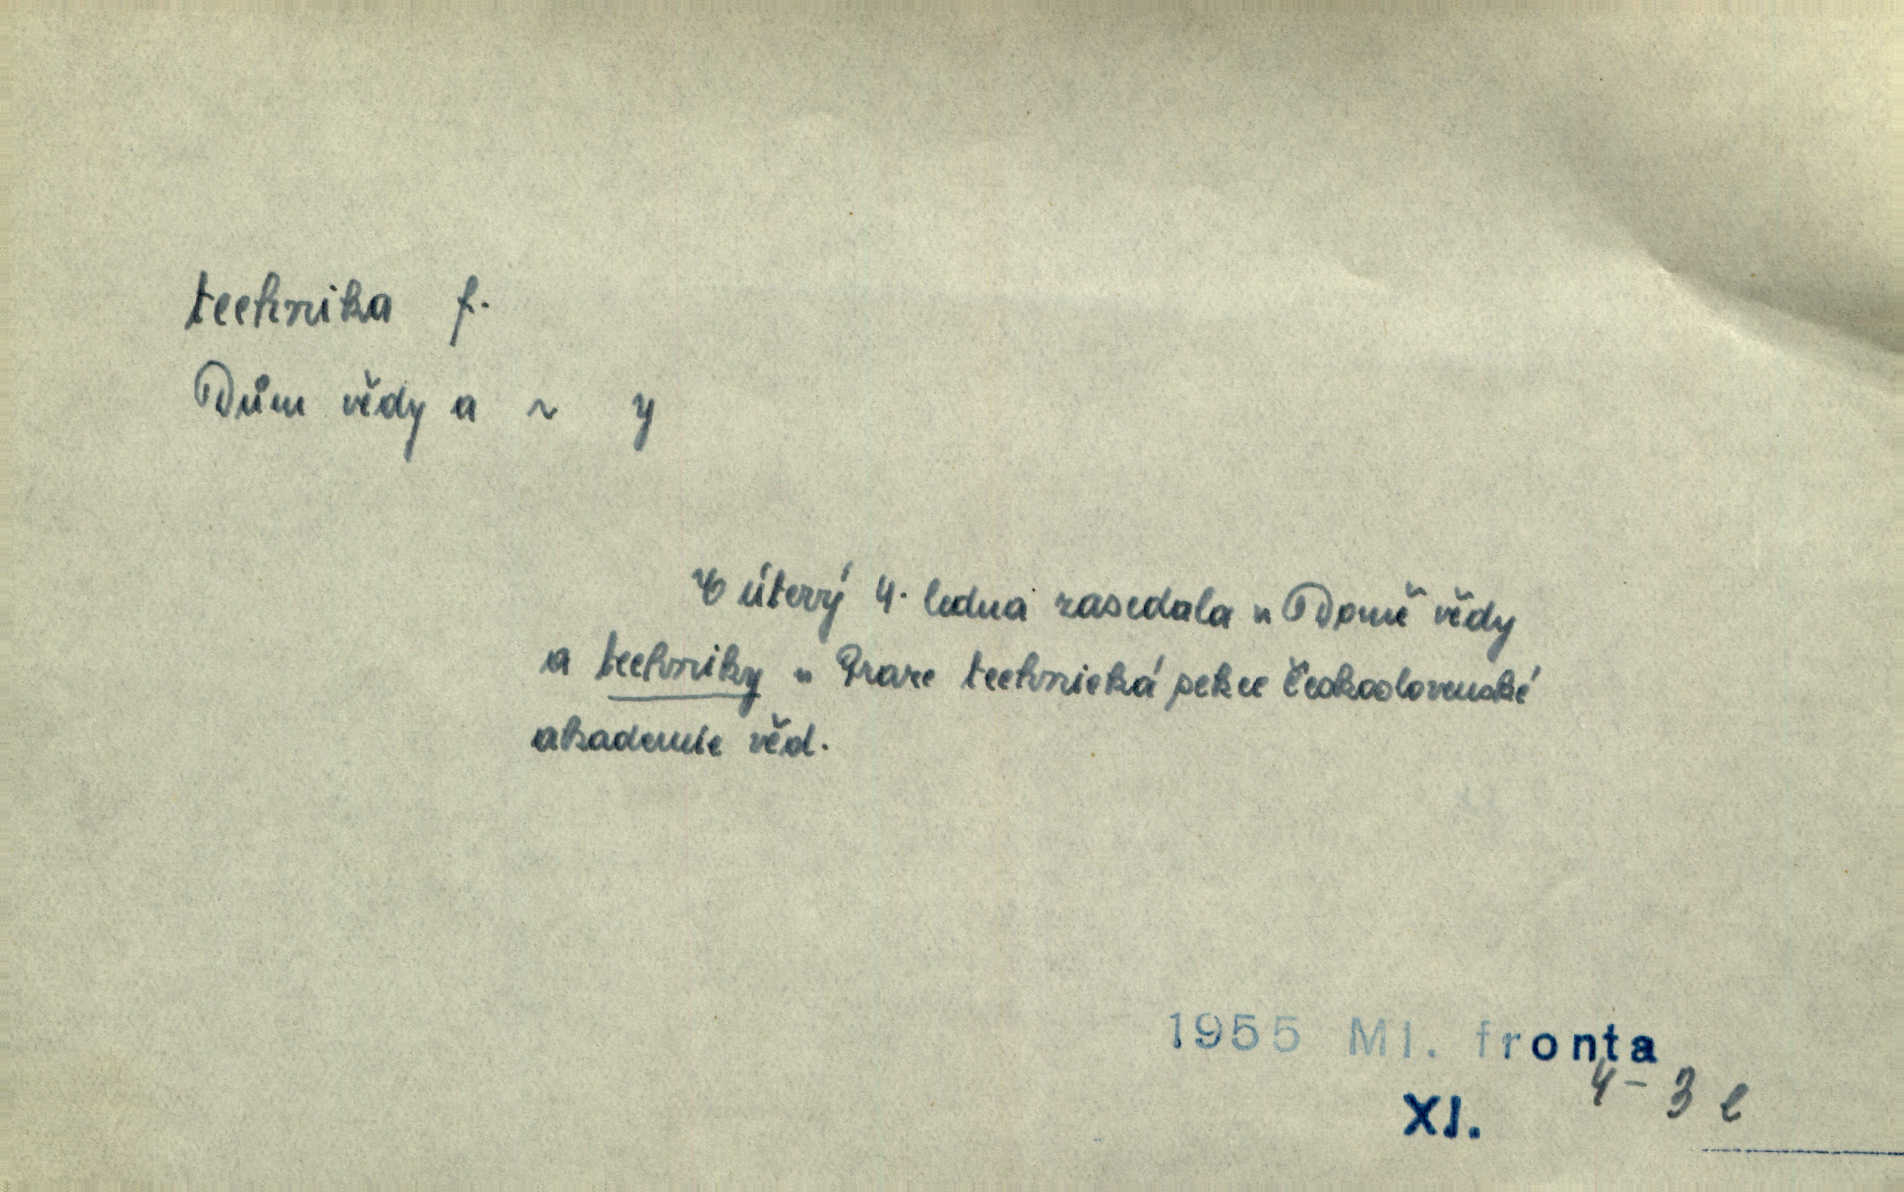 technika f.
Dům vědy a ~ y
V úterý 4. ledna zasedala v Domě vědy
a techniky v Praze technická sekce Československé
akademie věd.
1955 Ml. fronta
4 - 3 e
XI.